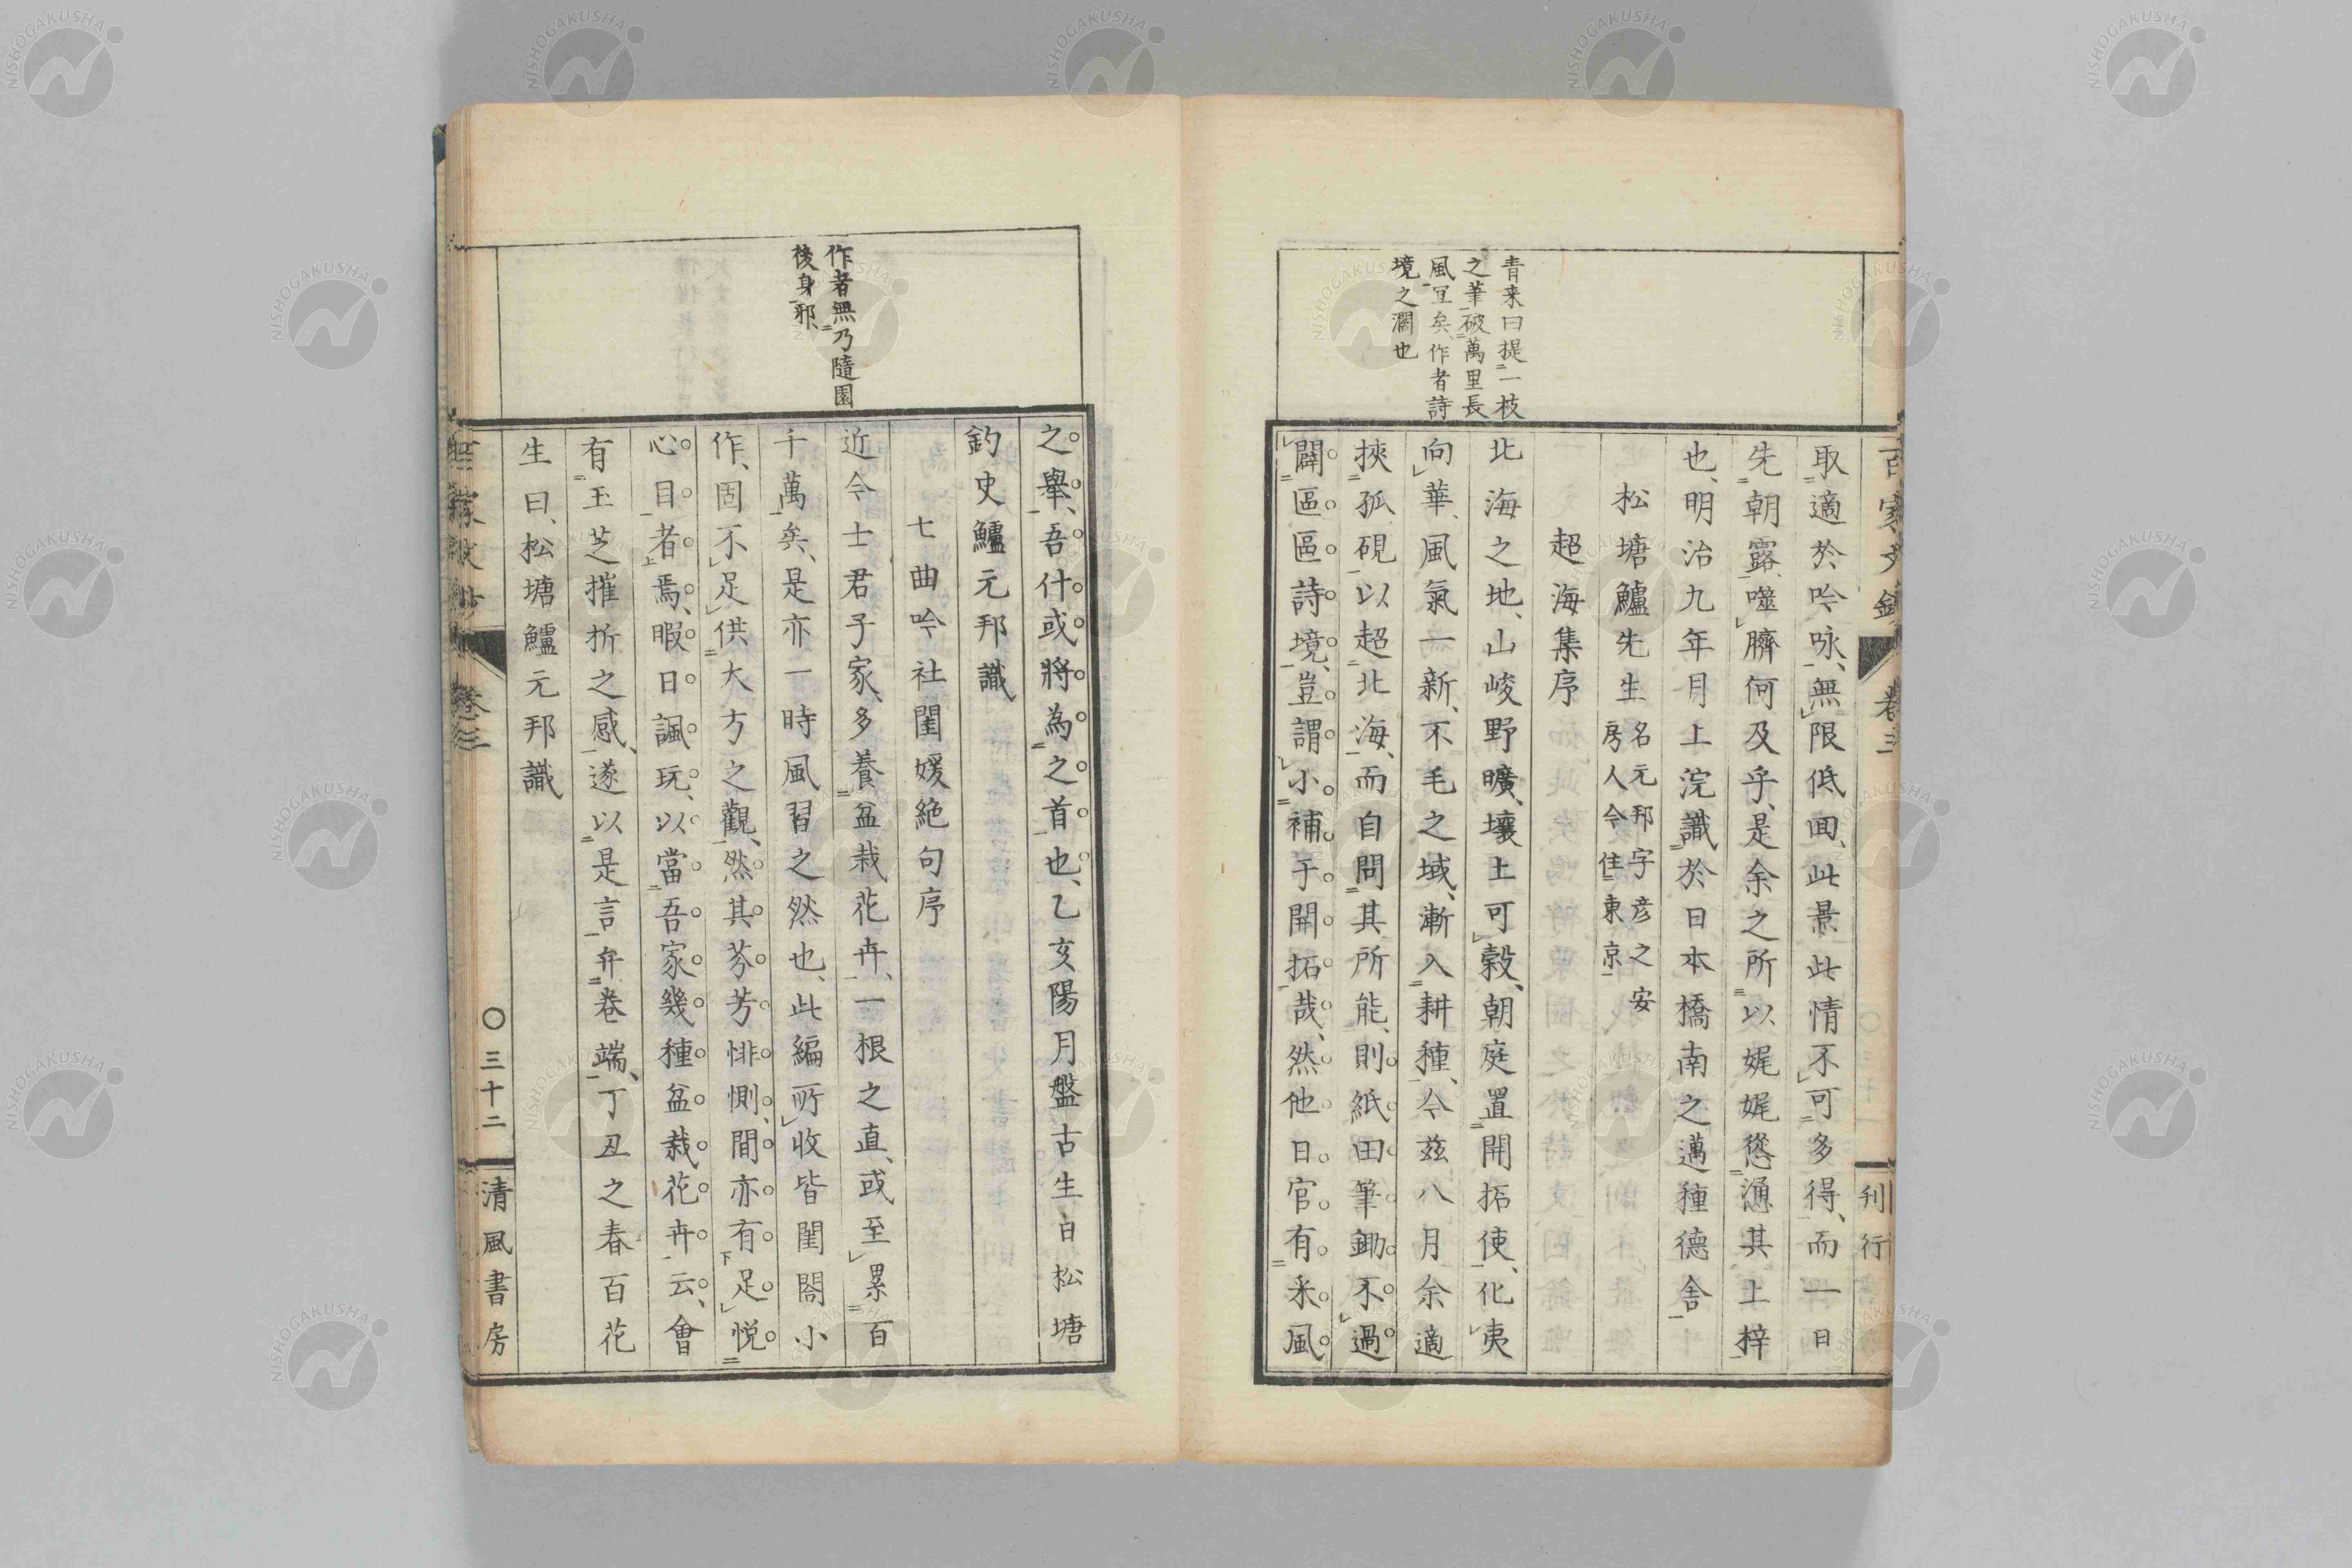 青来曰提一枝
之筆破萬里長
風宜矣作者詩
境之濶也
取適於吟咏、無限低回、此景此情不可多得、而一日
先朝露、噬臍何及乎、是余之所以娓娓慫慂其上梓
也、明治九年月上浣識於日本橋南之邁種德舍
松塘鱸先生 名元邦字彦之安
房人今住東京
超海集序
北海之地、山峻野曠、壤土可穀、朝庭置開拓使、化夷
向華、風氣一新、不毛之域、漸入耕種、今玆八月余適
挾孤硯以超北海、而自問其所能、則紙田筆鋤、不過
闢區區詩境、豈謂小補于開拓哉、然他日官有采風
百家文鈔 卷三 刊行
作者無乃隨園
後身邪、
之舉、吾什或將為之首也、乙亥陽月盤古生日松塘
釣史鱸元邦識
七曲吟社閨媛絶句序
近今士君子家、多養盆栽花卉、一根之直、或至累百
千萬矣、是亦一時風習之然也、此編所收皆閨閤小
作、固不足供大方之觀、然其芬芳悱惻、間亦有足悦
心目者焉、暇日諷玩、以當吾家幾種盆栽花卉云、會
有玉芝摧折之感、遂以是言弁卷端、丁丑之春百花
生日、松塘鱸元邦識
卷三 〇三十二 清風書房
NISHOGAKUSHA